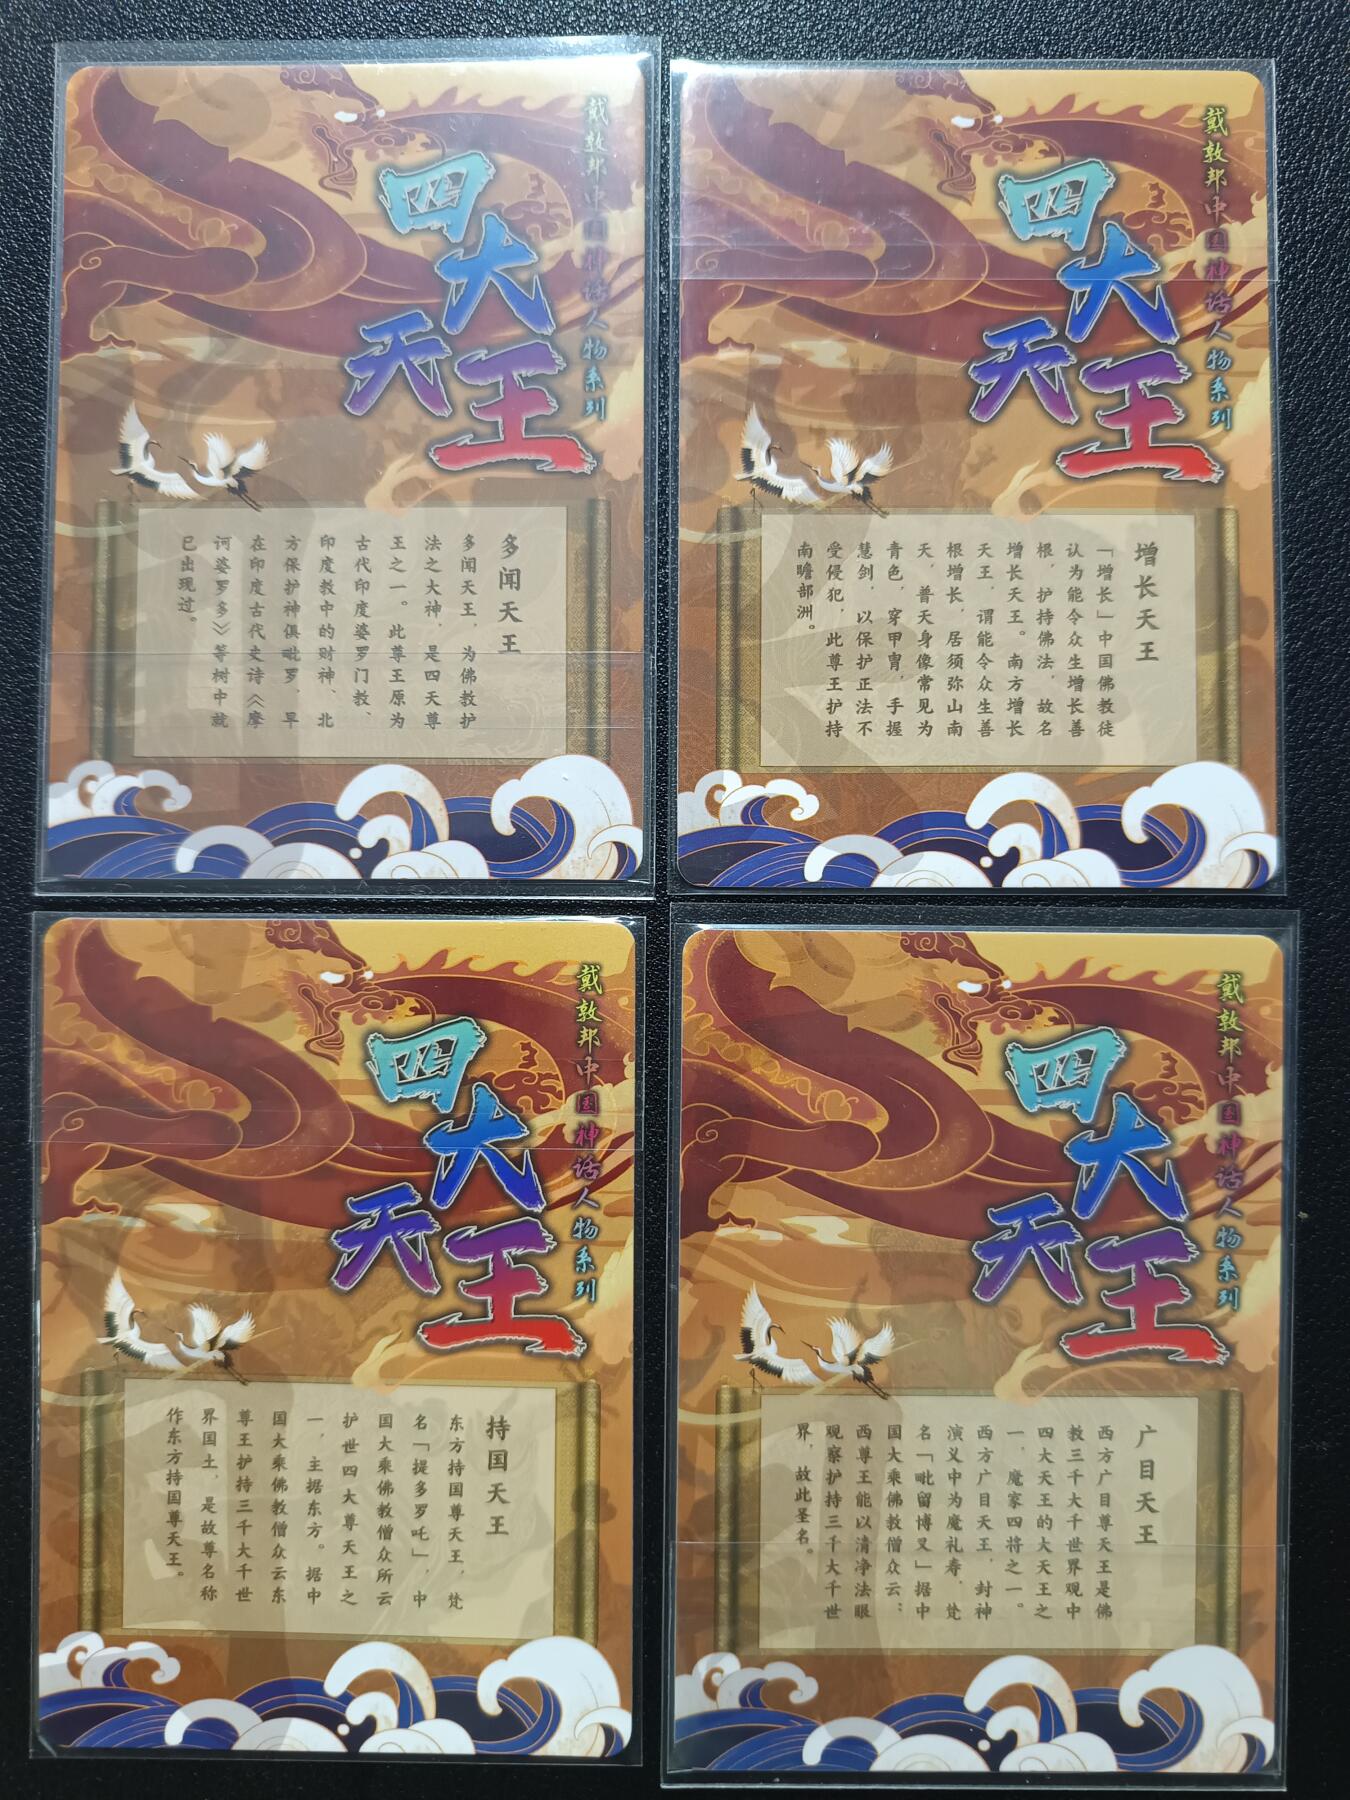 戴敦邦中国神话人物系列
四大天王
多闻天王
多闻天王，为佛教护
法之大神，是四天尊
王之一。此尊王原为
古代印度婆罗门教、
印度教中的财神、北
方保护神俱毗罗，早
在印度古代史诗《摩
诃婆罗多》等树中就
已出现过。
戴敦邦中国神话人物系列
四大天王
增长天王
「增长」中国佛教徒
认为能令众生增长善
根，护持佛法，故名
增长天王。南方增长
天王，谓能令众生善
根增长，居须弥山南
天，普天身像常见为
青色，穿甲胄，手握
慧剑，以保护正法不
受侵犯，此尊王护持
南瞻部洲。
戴敦邦中国神话人物系列
四大天王
持国天王
东方持国尊天王，梵
名「提多罗吒」，中
国大乘佛教僧众所云
护世四大尊天王之
一，主据东方。据中
国大乘佛教僧众云东
尊王护持三千大千世
界国土，是故尊名称
作东方持国尊天王。
戴敦邦中国神话人物系列
四大天王
广目天王
西方广目尊天王是佛
教三千大千世界观中
四大天王的大天王之
一，魔家四将之一。
西方广目天王，封神
演义中为魔礼寿，梵
名「毗留博叉」据中
国大乘佛教僧众云：
西尊王能以清净法眼
观察护持三千大千世
界，故此圣名。